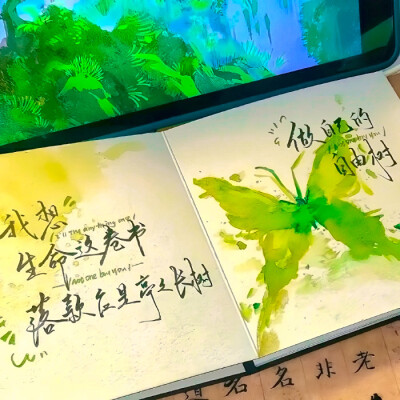 我想
生命这卷书
落款应是亭亭长树
做自己的
自由树
道名名非老